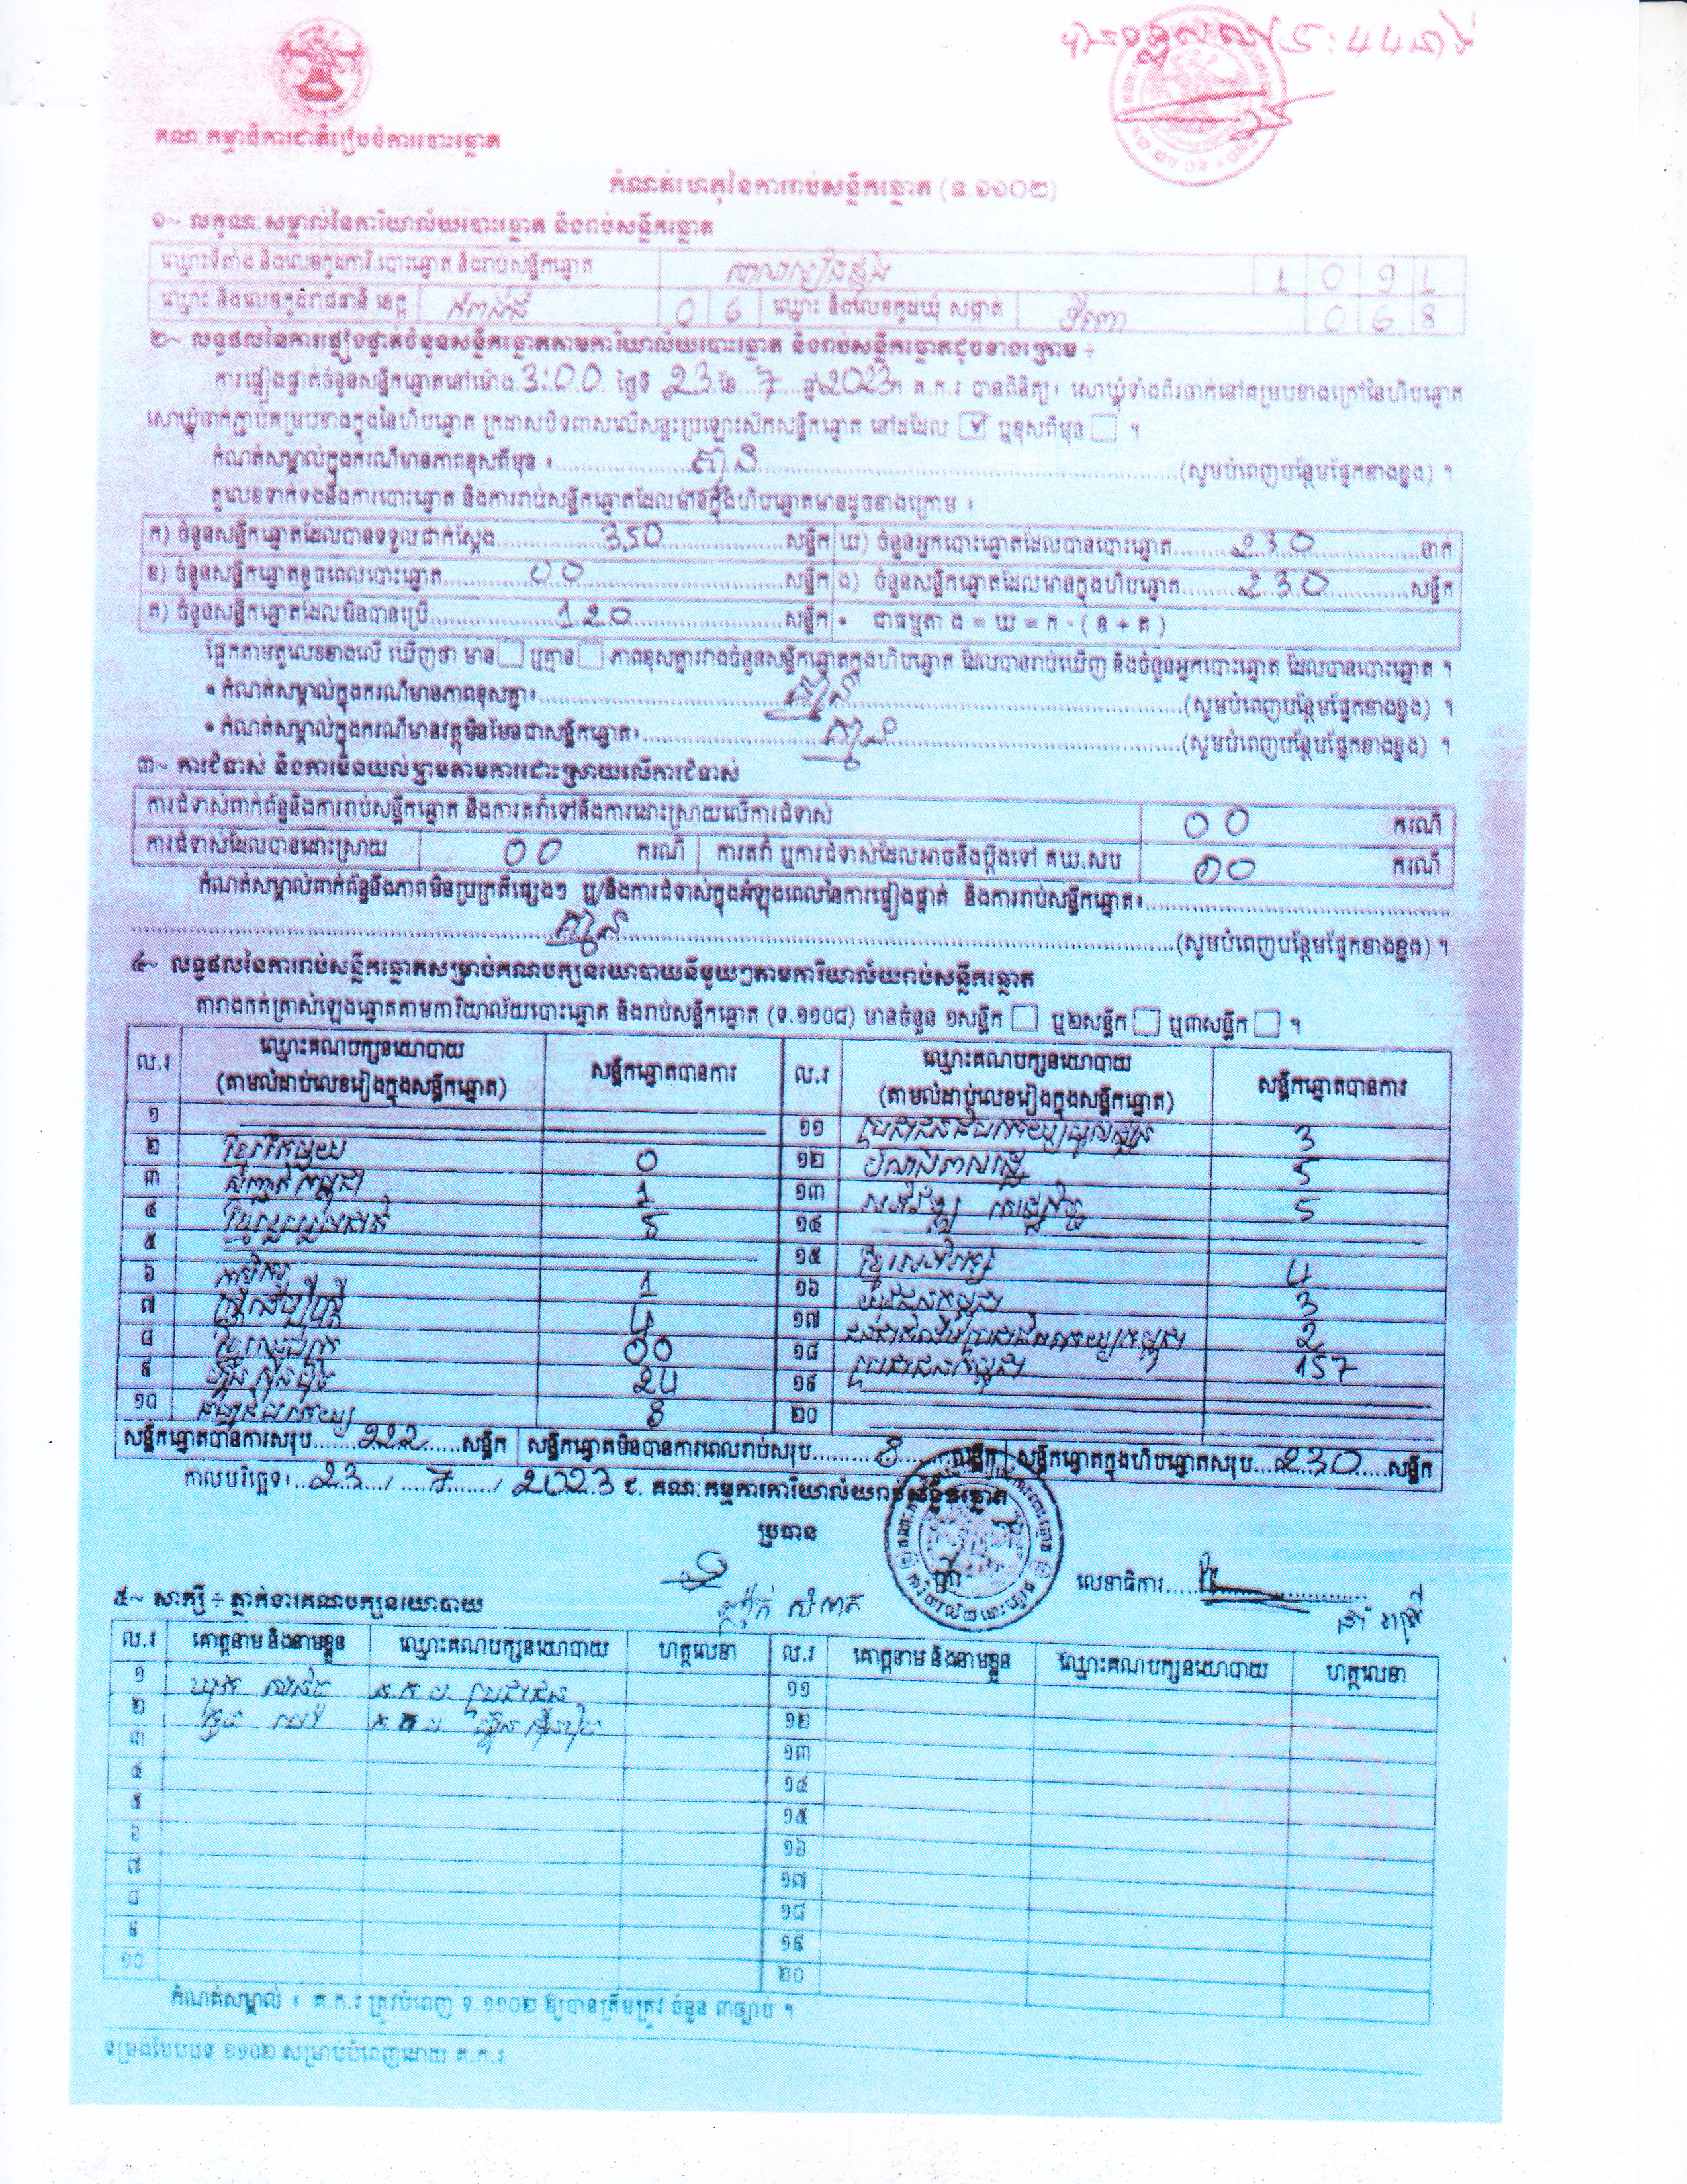 គណៈកម្មាធិការជាតិរៀបចំការបោះឆ្នោត
កំណត់ហេតុនៃការរាប់សន្លឹកឆ្នោត (ទ.១១០២)
១~ លក្ខណៈសម្គាល់នៃការិយាល័យបោះឆ្នោត និងរាប់សន្លឹកឆ្នោត
ឈ្មោះទីតាំង និងលេខកូដការិ.បោះឆ្នោត និងរាប់សន្លឹកឆ្នោត 1 0 9 1
ឈ្មោះ និងលេខកូដរាជធានី ខេត្ត កំពង់ធំ 0 6 ឈ្មោះ និងលេខកូដឃុំ សង្កាត់ 0 6 8
២~ លទ្ធផលនៃការផ្ទៀងផ្ទាត់ចំនួនសន្លឹកឆ្នោតតាមការិយាល័យបោះឆ្នោត និងរាប់សន្លឹកឆ្នោតដូចខាងក្រោម ÷
ការផ្ទៀងផ្ទាត់ចំនួនសន្លឹកឆ្នោតនៅម៉ោង 3:00 ថ្ងៃទី 23 ខែ 7 ឆ្នាំ 2023 គ.ក.រ បានពិនិត្យ៖ សោឃ្លុំទាំងពីរចាក់នៅគម្របខាងក្រៅនៃហិបឆ្នោត
សោឃ្លុំចាក់ភ្ជាប់គម្របខាងក្នុងនៃហិបឆ្នោត ក្រដាសបិទពាសលើសន្ទះប្រឡោះស៊កសន្លឹកឆ្នោត នៅដដែល ☑ ឬខុសពីមុន ☐ ។
កំណត់សម្គាល់ក្នុងករណីមានភាពខុសពីមុន ៖ គ្មាន (សូមបំពេញបន្ថែមផ្នែកខាងខ្នង) ។
តួលេខទាក់ទងនឹងការបោះឆ្នោត និងការរាប់សន្លឹកឆ្នោតដែលមានក្នុងហិបឆ្នោតមានដូចខាងក្រោម ៖
ក) ចំនួនសន្លឹកឆ្នោតដែលបានទទួលជាក់ស្តែង 350 សន្លឹក ឃ) ចំនួនអ្នកបោះឆ្នោតដែលបានបោះឆ្នោត 230 នាក់
ខ) ចំនួនសន្លឹកឆ្នោតខូចពេលបោះឆ្នោត 00 សន្លឹក ង) ចំនួនសន្លឹកឆ្នោតដែលមានក្នុងហិបឆ្នោត 230 សន្លឹក
គ) ចំនួនសន្លឹកឆ្នោតដែលមិនបានប្រើ 120 សន្លឹក • ជាធម្មតា ង = ឃ = ក - ( ខ + គ )
ផ្អែកតាមតួលេខខាងលើ ឃើញថា មាន ☐ ឬគ្មាន ☐ ភាពខុសគ្នារវាងចំនួនសន្លឹកឆ្នោតក្នុងហិបឆ្នោត ដែលបានរាប់ឃើញ និងចំនួនអ្នកបោះឆ្នោត ដែលបានបោះឆ្នោត ។
• កំណត់សម្គាល់ក្នុងករណីមានភាពខុសគ្នា៖ គ្មាន (សូមបំពេញបន្ថែមផ្នែកខាងខ្នង) ។
• កំណត់សម្គាល់ក្នុងករណីមានវត្ថុមិនមែនជាសន្លឹកឆ្នោត៖ គ្មាន (សូមបំពេញបន្ថែមផ្នែកខាងខ្នង) ។
៣~ ការជំទាស់ និងការមិនយល់ព្រមតាមការដោះស្រាយលើការជំទាស់
ការជំទាស់ពាក់ព័ន្ធនឹងការរាប់សន្លឹកឆ្នោត និងការតវ៉ាទៅនឹងការដោះស្រាយលើការជំទាស់ 00 ករណី
ការជំទាស់ដែលបានដោះស្រាយ 00 ករណី ការតវ៉ា ឬការជំទាស់ដែលអាចនឹងប្តឹងទៅ គឃ.សប 00 ករណី
កំណត់សម្គាល់ពាក់ព័ន្ធនឹងភាពមិនប្រក្រតីផ្សេងៗ ឬ/និងការជំទាស់ក្នុងអំឡុងពេលនៃការផ្ទៀងផ្ទាត់ និងការរាប់សន្លឹកឆ្នោត៖
គ្មាន (សូមបំពេញបន្ថែមផ្នែកខាងខ្នង) ។
៤~ លទ្ធផលនៃការរាប់សន្លឹកឆ្នោតសម្រាប់គណបក្សនយោបាយនីមួយៗតាមការិយាល័យរាប់សន្លឹកឆ្នោត
តារាងកត់ត្រាសំឡេងឆ្នោតតាមការិយាល័យបោះឆ្នោត និងរាប់សន្លឹកឆ្នោត (ទ.១១០៨) មានចំនួន ១សន្លឹក ☐ ឬ២សន្លឹក ☐ ឬ៣សន្លឹក ☐ ។
ល.រ ឈ្មោះគណបក្សនយោបាយ (តាមលំដាប់លេខរៀងក្នុងសន្លឹកឆ្នោត) សន្លឹកឆ្នោតបានការ ល.រ ឈ្មោះគណបក្សនយោបាយ (តាមលំដាប់លេខរៀងក្នុងសន្លឹកឆ្នោត) សន្លឹកឆ្នោតបានការ
១ ១១ 3
២ ខ្មែរតែមួយ 0 ១២ 5
៣ 1 ១៣ 5
៤ 5 ១៤
៥ ១៥ ខ្មែរអភិរក្ស 4
៦ កសិករ 1 ១៦ 3
៧ 4 ១៧ 2
៨ 00 ១៨ ប្រជាជនកម្ពុជា 157
៩ ហ្វ៊ុនស៊ិនប៉ិច 24 ១៩
១០ 8 ២០
សន្លឹកឆ្នោតបានការសរុប 222 សន្លឹក សន្លឹកឆ្នោតមិនបានការពេលរាប់សរុប 8 សន្លឹក សន្លឹកឆ្នោតក្នុងហិបឆ្នោតសរុប 230 សន្លឹក
កាលបរិច្ឆេទ៖ 23 / 7 / 2023 ជ. គណៈកម្មការការិយាល័យរាប់សន្លឹកឆ្នោត
ប្រធាន
លេខាធិការ
៥~ សាក្សី ÷ ភ្នាក់ងារគណបក្សនយោបាយ
ល.រ គោត្តនាម និងនាមខ្លួន ឈ្មោះគណបក្សនយោបាយ ហត្ថលេខា ល.រ គោត្តនាម និងនាមខ្លួន ឈ្មោះគណបក្សនយោបាយ ហត្ថលេខា
១ គ.ក.ប ប្រជាជន ១១
២ គ.ក.ប ហ្វ៊ុនស៊ិនប៉ិច ១២
៣ ១៣
៤ ១៤
៥ ១៥
៦ ១៦
៧ ១៧
៨ ១៨
៩ ១៩
១០ ២០
កំណត់សម្គាល់ ៖ គ.ក.រ ត្រូវបំពេញ ទ.១១០២ ឱ្យបានត្រឹមត្រូវ ចំនួន ៣ច្បាប់ ។
ទម្រង់បែបបទ ១១០២ សម្រាប់បំពេញដោយ គ.ក.រ